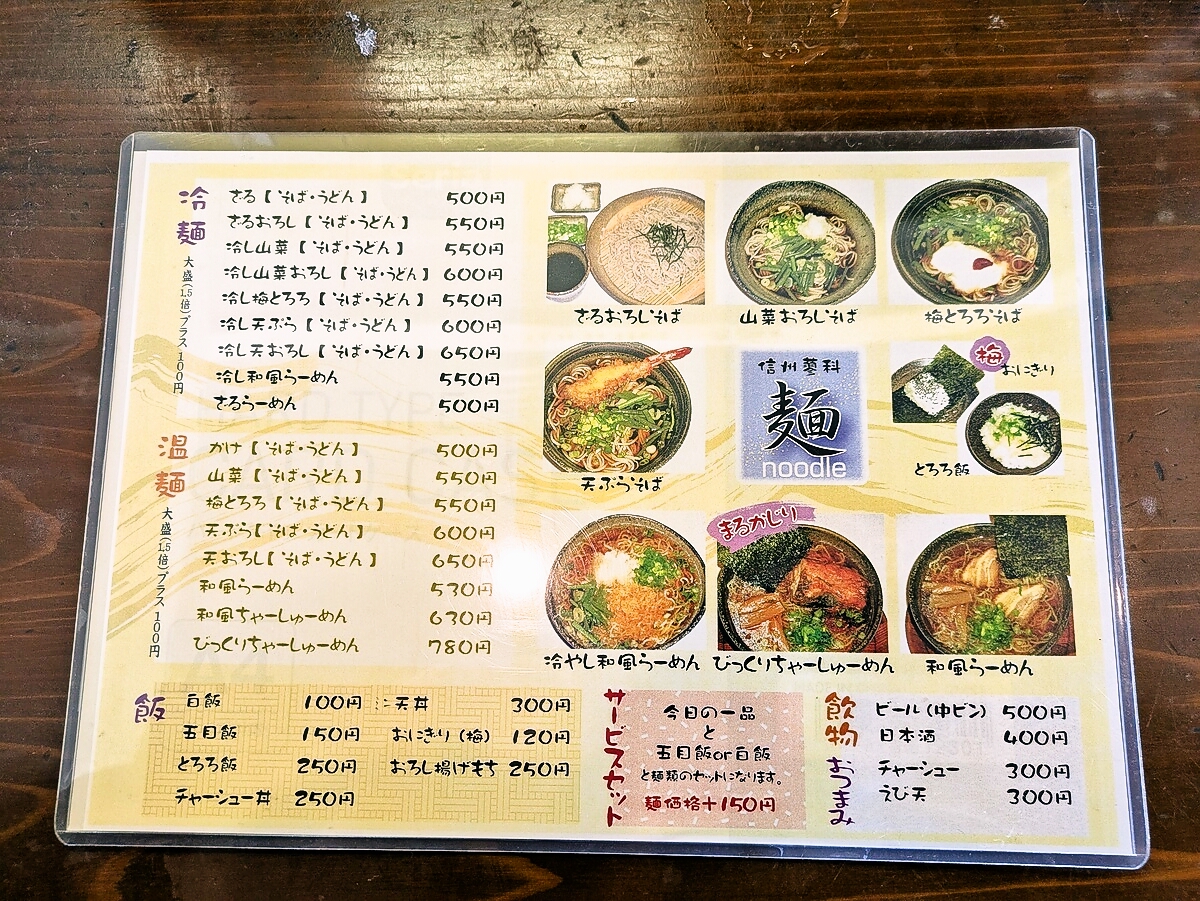 冷麺
大盛(1.5倍)プラス100円
ざる【そば・うどん】 500円
ざるおろし【そば・うどん】 550円
冷し山菜【そば・うどん】 550円
冷し山菜おろし【そば・うどん】 600円
冷し梅とろろ【そば・うどん】 550円
冷し天ぷら【そば・うどん】 600円
冷し天おろし【そば・うどん】 650円
冷し和風らーめん 550円
ざるらーめん 500円
温麺
大盛(1.5倍)プラス100円
かけ【そば・うどん】 500円
山菜【そば・うどん】 550円
梅とろろ【そば・うどん】 550円
天ぷら【そば・うどん】 600円
天おろし【そば・うどん】 650円
和風らーめん 530円
和風ちゃーしゅーめん 630円
びっくりちゃーしゅーめん 780円
ざるおろしそば
山菜おろしそば
梅とろろそば
天ぷらそば
信州蓼科
麺
noodle
梅
おにぎり
とろろ飯
まるかじり
冷やし和風らーめん
びっくりちゃーしゅーめん
和風らーめん
飯
白飯 100円
五目飯 150円
とろろ飯 250円
チャーシュー丼 250円
ミニ天丼 300円
おにぎり(梅) 120円
おろし揚げもち 250円
サービスセット
今日の一品
と
五目飯or白飯
と麺類のセットになります。
麺価格+150円
飲物
ビール(中ビン) 500円
日本酒 400円
おつまみ
チャーシュー 300円
えび天 300円